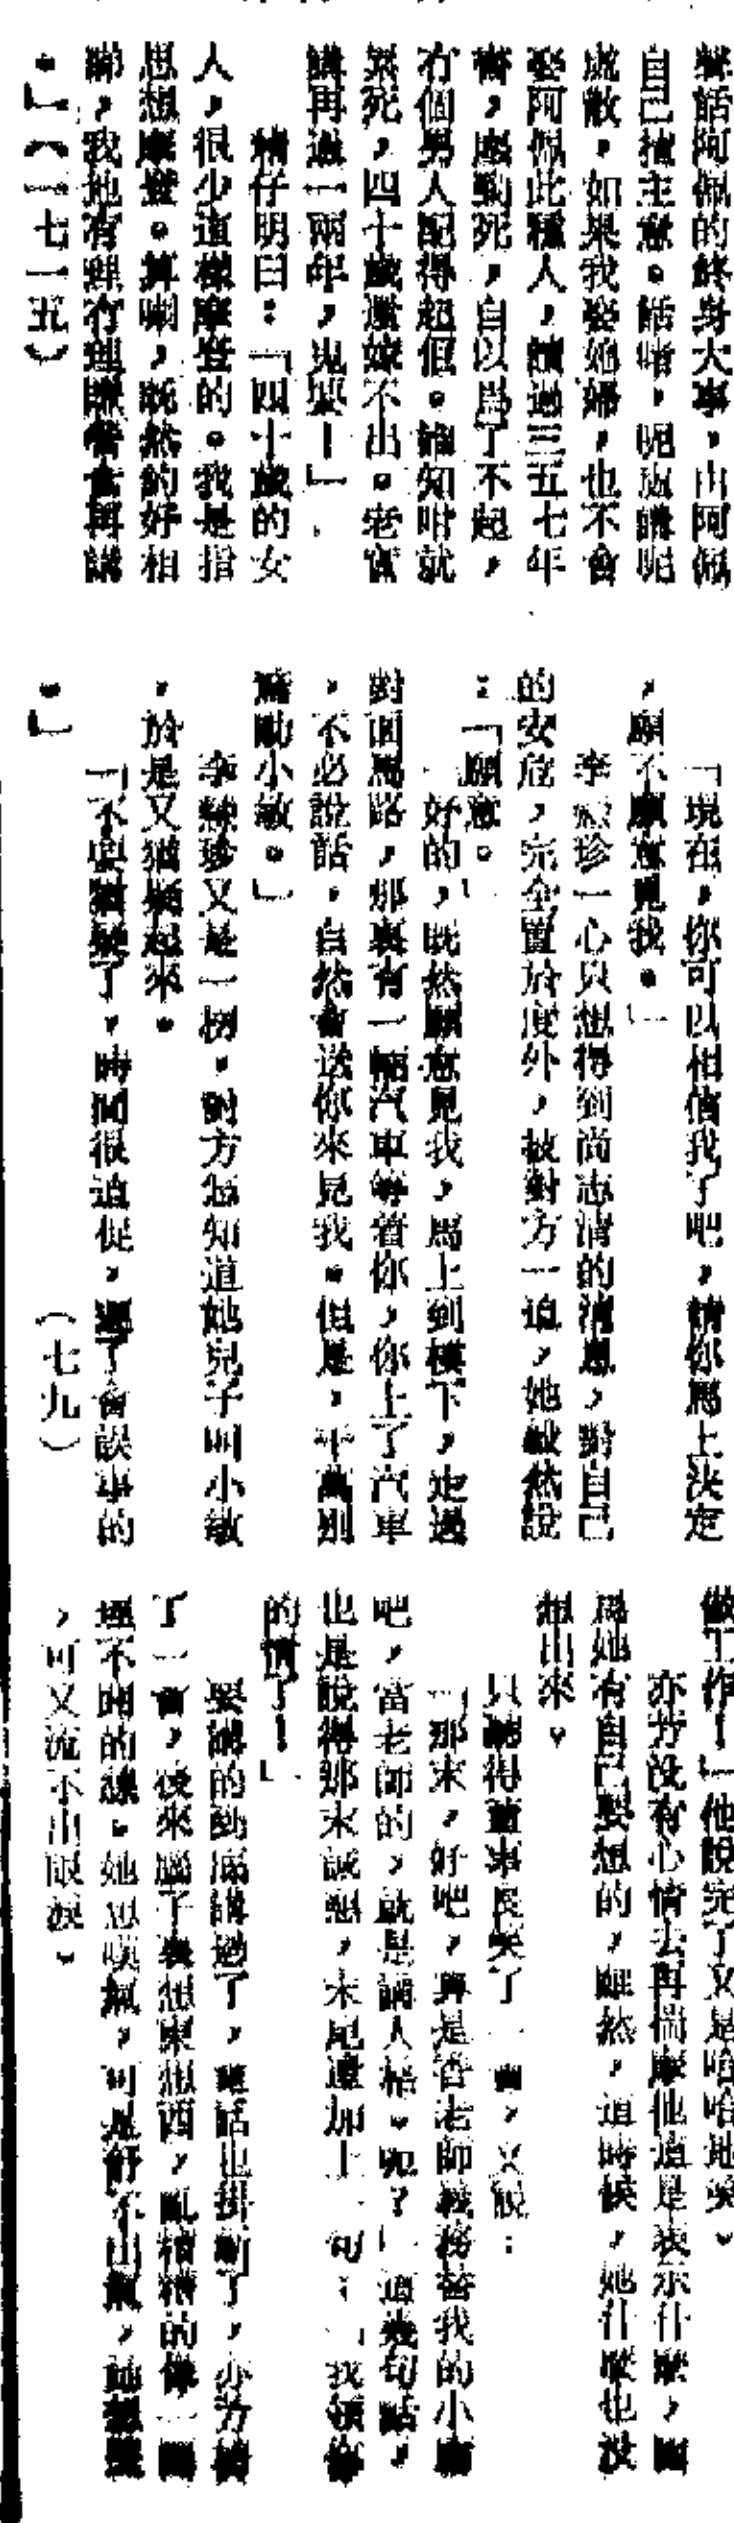 話阿佩的終身大事，由阿佩
自己揸主意。話哂，呢處講呢
處散，如果我娶她婦，也不會
娶阿佩此種人，讀過三五七年
書，塵到死，自以爲了不起，
冇個男人配得起佢。誰知咁就
累死，四十歲還嫁不出。老實
講再過一兩年，鬼要！」
精仔明曰：「四十歲的女
人，很少這樣摩登的。我是指
思想摩登。算喇，既然的好相
睇，我地有理冇理睇嘗再講
。」（一七一五）
「現在，你可以相信我了吧，請你馬上決定
，願不願意見我。」
李珍一心只想得到尚志清的消息，對自己
的安危，完全置於度外，被對方一迫，她毅然說
：「願意。」
「好的，既然願意見我，馬上到樓下，走過
對面馬路，那裏有一輛汽車等着你，你上了汽車
，不必說話，自然會送你來見我。但是，千萬別
驚動小敏。」
李珍又是一楞，對方怎知道她兒子叫小敏
，於是又猶疑起來。
「不要猶疑了，時間很迫促，遲了會誤事的
。」
（七九）
做工作！」他說完了又是哈哈地笑。
亦芳沒有心情去再揣摩他這是表示什麼，因
爲她有自己要想的，雖然，這時候，她什麼也沒
想出來。
只聽得董事長笑了一會，又說：
「那末，好吧，算是否老師義務替我的小
吧，當老師的，就是講人格。呃？」這幾句話，
也是說得那末誠懇，末尾還加上一句：「我領你
的情了！」
要講的到底講過了，電話也掛斷了，亦芳
了一會，後來腦子裏想東想西，亂糟糟的像一團
理不開的線。她想嘆氣，可是舒不出氣，她想
，可又流不出眼淚。